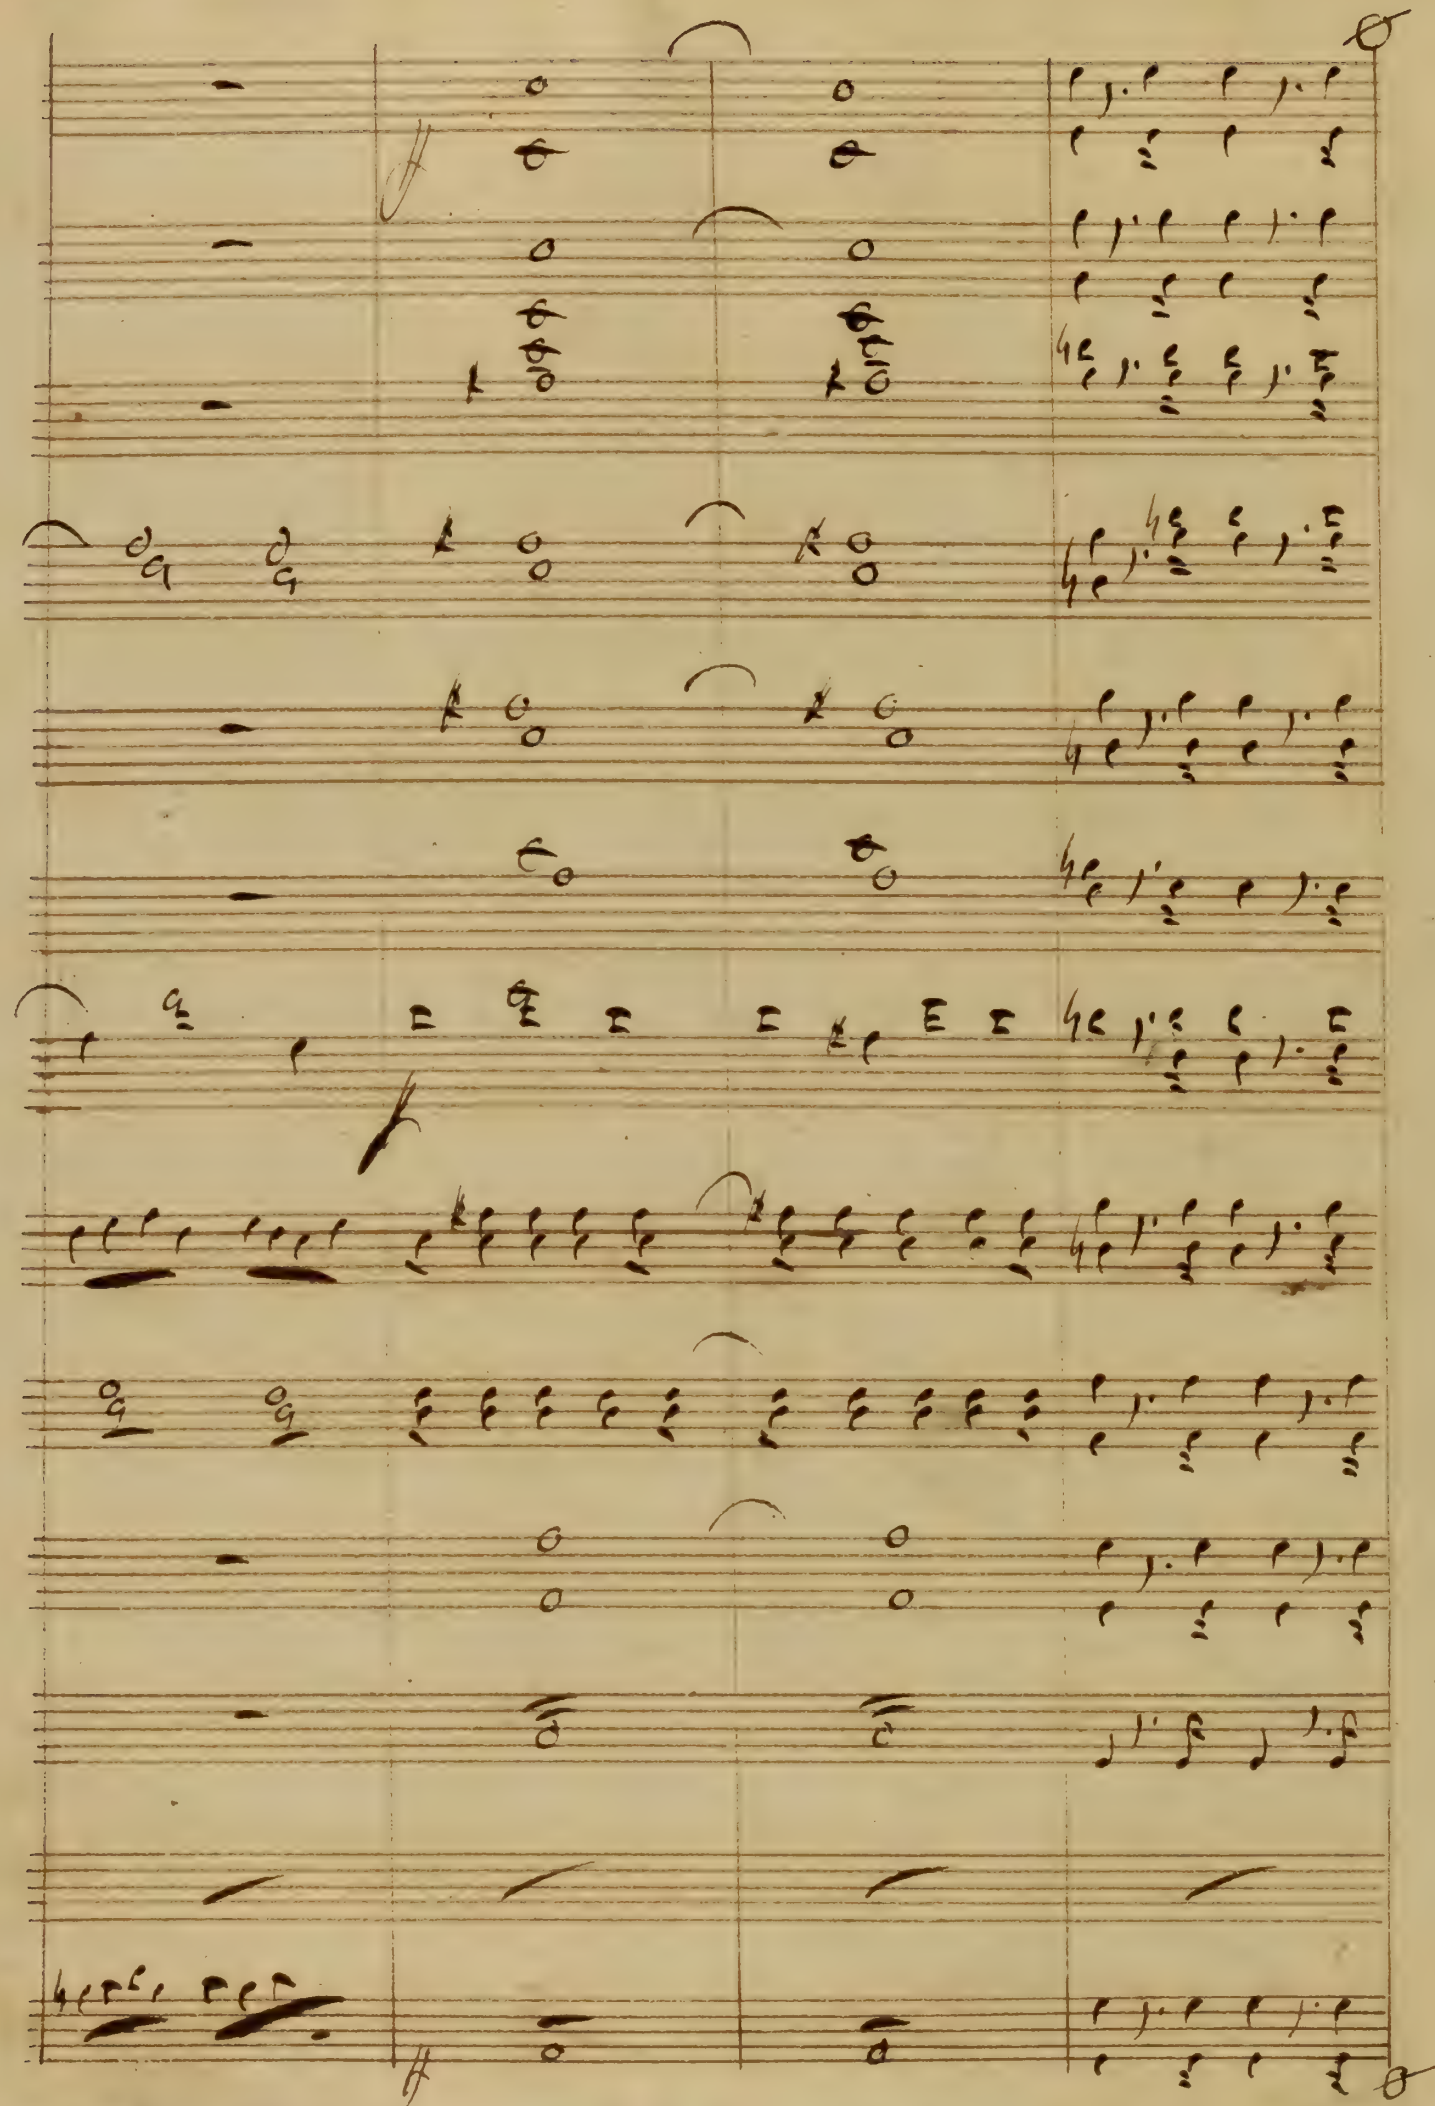 ff
f
ff